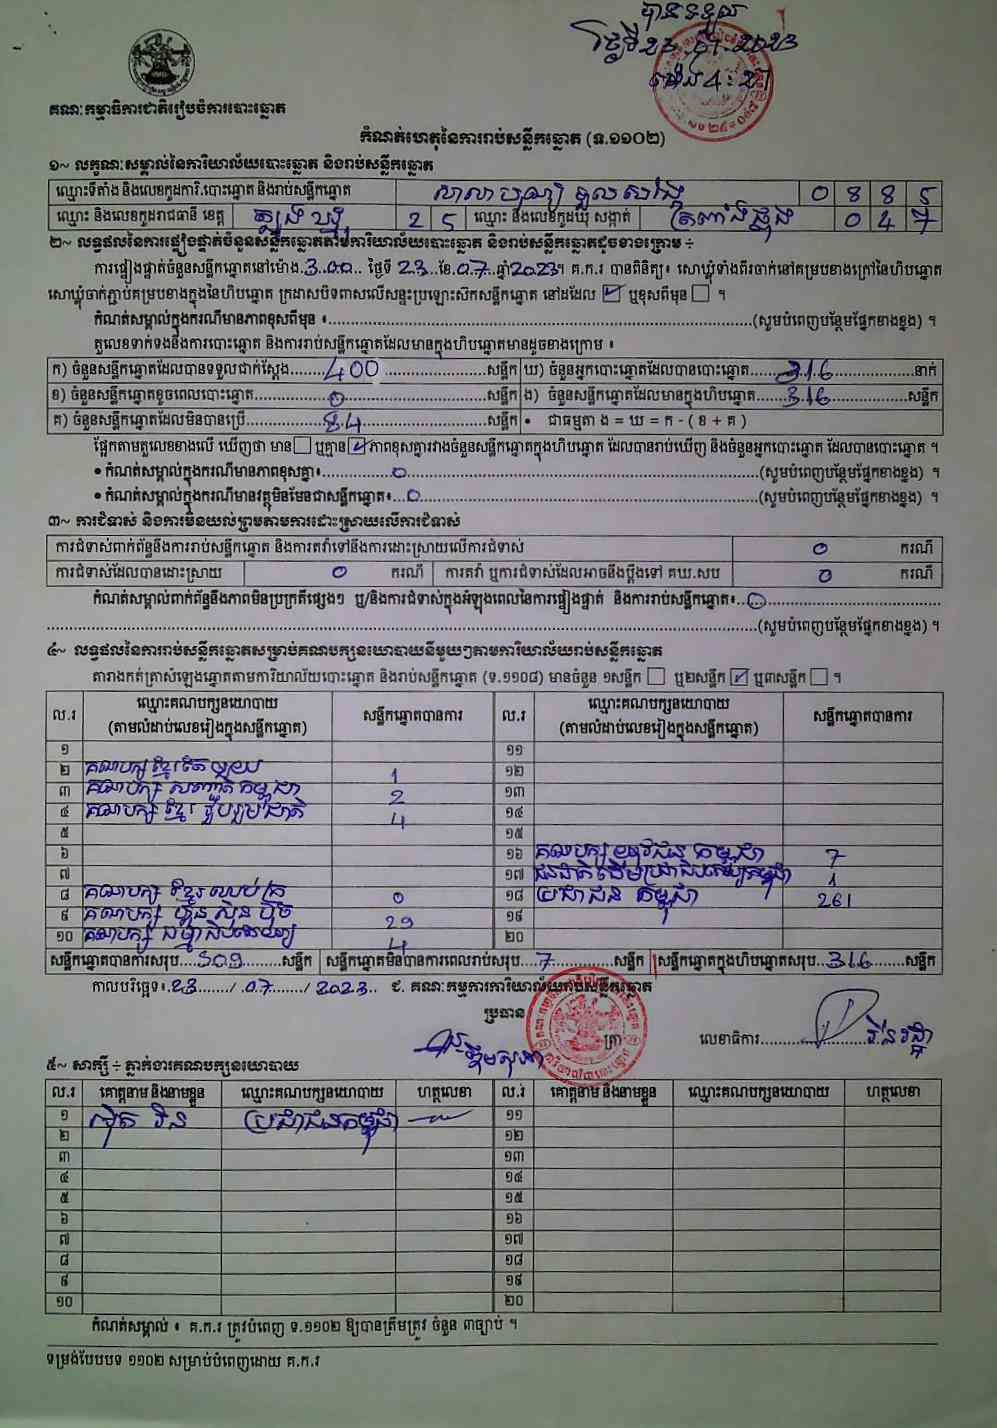 បានទទួល
ថ្ងៃទី 23.07.2023
ម៉ោង 4:27
គណៈកម្មាធិការជាតិរៀបចំការបោះឆ្នោត
កំណត់ហេតុនៃការរាប់សន្លឹកឆ្នោត (ទ.១១០២)
១~ លក្ខណៈសម្គាល់នៃការិយាល័យបោះឆ្នោត និងរាប់សន្លឹកឆ្នោត
ឈ្មោះទីតាំង និងលេខកូដការិ.បោះឆ្នោត និងរាប់សន្លឹកឆ្នោត សាលាបុណ្យ ទួលសាំង្កែ 0 8 8 5
ឈ្មោះ និងលេខកូដរាជធានី ខេត្ត ត្បូងឃ្មុំ 2 5 ឈ្មោះ និងលេខកូដឃុំ សង្កាត់ ត្រពាំងផ្លុង 0 4 7
២~ លទ្ធផលនៃការផ្ទៀងផ្ទាត់ចំនួនសន្លឹកឆ្នោតតាមការិយាល័យបោះឆ្នោត និងរាប់សន្លឹកឆ្នោតដូចខាងក្រោម ៖
ការផ្ទៀងផ្ទាត់ចំនួនសន្លឹកឆ្នោតនៅម៉ោង.3.00.. ថ្ងៃទី 23..ខែ.0.7..ឆ្នាំ2023។ គ.ក.រ បានពិនិត្យ៖ សោឃ្លុំទាំងពីរចាក់នៅគម្របខាងក្រៅនៃហិបឆ្នោត
សោឃ្លុំចាក់ភ្ជាប់គម្របខាងក្នុងនៃហិបឆ្នោត ក្រដាសបិទពាសលើសន្ទះប្រឡោះស៊កសន្លឹកឆ្នោត នៅដដែល ☑ ឬខុសពីមុន ☐ ។
កំណត់សម្គាល់ក្នុងករណីមានភាពខុសពីមុន ៖..........(សូមបំពេញបន្ថែមផ្នែកខាងខ្នង) ។
តួលេខទាក់ទងនឹងការបោះឆ្នោត និងការរាប់សន្លឹកឆ្នោតដែលមានក្នុងហិបឆ្នោតមានដូចខាងក្រោម ៖
ក) ចំនួនសន្លឹកឆ្នោតដែលបានទទួលជាក់ស្តែង.......400..........សន្លឹក ឃ) ចំនួនអ្នកបោះឆ្នោតដែលបានបោះឆ្នោត......316..........នាក់
ខ) ចំនួនសន្លឹកឆ្នោតខូចពេលបោះឆ្នោត..........0..........សន្លឹក ង) ចំនួនសន្លឹកឆ្នោតដែលមានក្នុងហិបឆ្នោត......316..........សន្លឹក
គ) ចំនួនសន្លឹកឆ្នោតដែលមិនបានប្រើ..........84..........សន្លឹក • ជាធម្មតា ង = ឃ = ក - ( ខ + គ )
ផ្អែកតាមតួលេខខាងលើ ឃើញថា មាន ☐ ឬគ្មាន ☑ ភាពខុសគ្នារវាងចំនួនសន្លឹកឆ្នោតក្នុងហិបឆ្នោត ដែលបានរាប់ឃើញ និងចំនួនអ្នកបោះឆ្នោត ដែលបានបោះឆ្នោត ។
• កំណត់សម្គាល់ក្នុងករណីមានភាពខុសគ្នា៖..........0..........(សូមបំពេញបន្ថែមផ្នែកខាងខ្នង) ។
• កំណត់សម្គាល់ក្នុងករណីមានវត្ថុមិនមែនជាសន្លឹកឆ្នោត៖...0..........(សូមបំពេញបន្ថែមផ្នែកខាងខ្នង) ។
៣~ ការជំទាស់ និងការមិនយល់ព្រមតាមការដោះស្រាយលើការជំទាស់
ការជំទាស់ពាក់ព័ន្ធនឹងការរាប់សន្លឹកឆ្នោត និងការតវ៉ាទៅនឹងការដោះស្រាយលើការជំទាស់ 0 ករណី
ការជំទាស់ដែលបានដោះស្រាយ 0 ករណី ការតវ៉ា ឬការជំទាស់ដែលអាចនឹងប្តឹងទៅ គឃ.សប 0 ករណី
កំណត់សម្គាល់ពាក់ព័ន្ធនឹងភាពមិនប្រក្រតីផ្សេងៗ ឬ/និងការជំទាស់ក្នុងអំឡុងពេលនៃការផ្ទៀងផ្ទាត់ និងការរាប់សន្លឹកឆ្នោត៖..0..........
..........(សូមបំពេញបន្ថែមផ្នែកខាងខ្នង) ។
៤~ លទ្ធផលនៃការរាប់សន្លឹកឆ្នោតសម្រាប់គណបក្សនយោបាយនីមួយៗតាមការិយាល័យរាប់សន្លឹកឆ្នោត
តារាងកត់ត្រាសំឡេងឆ្នោតតាមការិយាល័យបោះឆ្នោត និងរាប់សន្លឹកឆ្នោត (ទ.១១០៨) មានចំនួន ១សន្លឹក ☐ ឬ២សន្លឹក ☑ ឬ៣សន្លឹក ☐ ។
ល.រ ឈ្មោះគណបក្សនយោបាយ (តាមលំដាប់លេខរៀងក្នុងសន្លឹកឆ្នោត) សន្លឹកឆ្នោតបានការ ល.រ ឈ្មោះគណបក្សនយោបាយ (តាមលំដាប់លេខរៀងក្នុងសន្លឹកឆ្នោត) សន្លឹកឆ្នោតបានការ
១ ១១
២ គណបក្ស ខ្មែរតែមួយ 1 ១២
៣ គណបក្ស សញ្ជាតិកម្ពុជា 2 ១៣
៤ គណបក្ស ខ្មែរ រួបរួមជាតិ 4 ១៤
៥ ១៥
៦ ១៦ គណបក្ស យុវជន កម្ពុជា 7
៧ ១៧ ជនជាតិដើមប្រជាធិបតេយ្យកម្ពុជា 1
៨ គណបក្ស ខ្មែរឈប់ក្រ 0 ១៨ ប្រជាជន កម្ពុជា 261
៩ គណបក្ស ហ៊្វុនស៊ិនប៉ិច 29 ១៩
១០ គណបក្ស ធម្មាធិបតេយ្យ 4 ២០
សន្លឹកឆ្នោតបានការសរុប...309........សន្លឹក សន្លឹកឆ្នោតមិនបានការពេលរាប់សរុប...7........សន្លឹក សន្លឹកឆ្នោតក្នុងហិបឆ្នោតសរុប..316.......សន្លឹក
កាលបរិច្ឆេទ៖.23....../.07......./.2023.. ជ. គណៈកម្មការការិយាល័យរាប់សន្លឹកឆ្នោត
ប្រធាន
ត្រា លេខាធិការ....................
៥~ សាក្សី ៖ ភ្នាក់ងារគណបក្សនយោបាយ
ល.រ គោត្តនាម និងនាមខ្លួន ឈ្មោះគណបក្សនយោបាយ ហត្ថលេខា ល.រ គោត្តនាម និងនាមខ្លួន ឈ្មោះគណបក្សនយោបាយ ហត្ថលេខា
១ ប្រជាជនកម្ពុជា ១១
២ ១២
៣ ១៣
៤ ១៤
៥ ១៥
៦ ១៦
៧ ១៧
៨ ១៨
៩ ១៩
១០ ២០
កំណត់សម្គាល់ ៖ គ.ក.រ ត្រូវបំពេញ ទ.១១០២ ឱ្យបានត្រឹមត្រូវ ចំនួន ៣ច្បាប់ ។
ទម្រង់បែបបទ ១១០២ សម្រាប់បំពេញដោយ គ.ក.រ